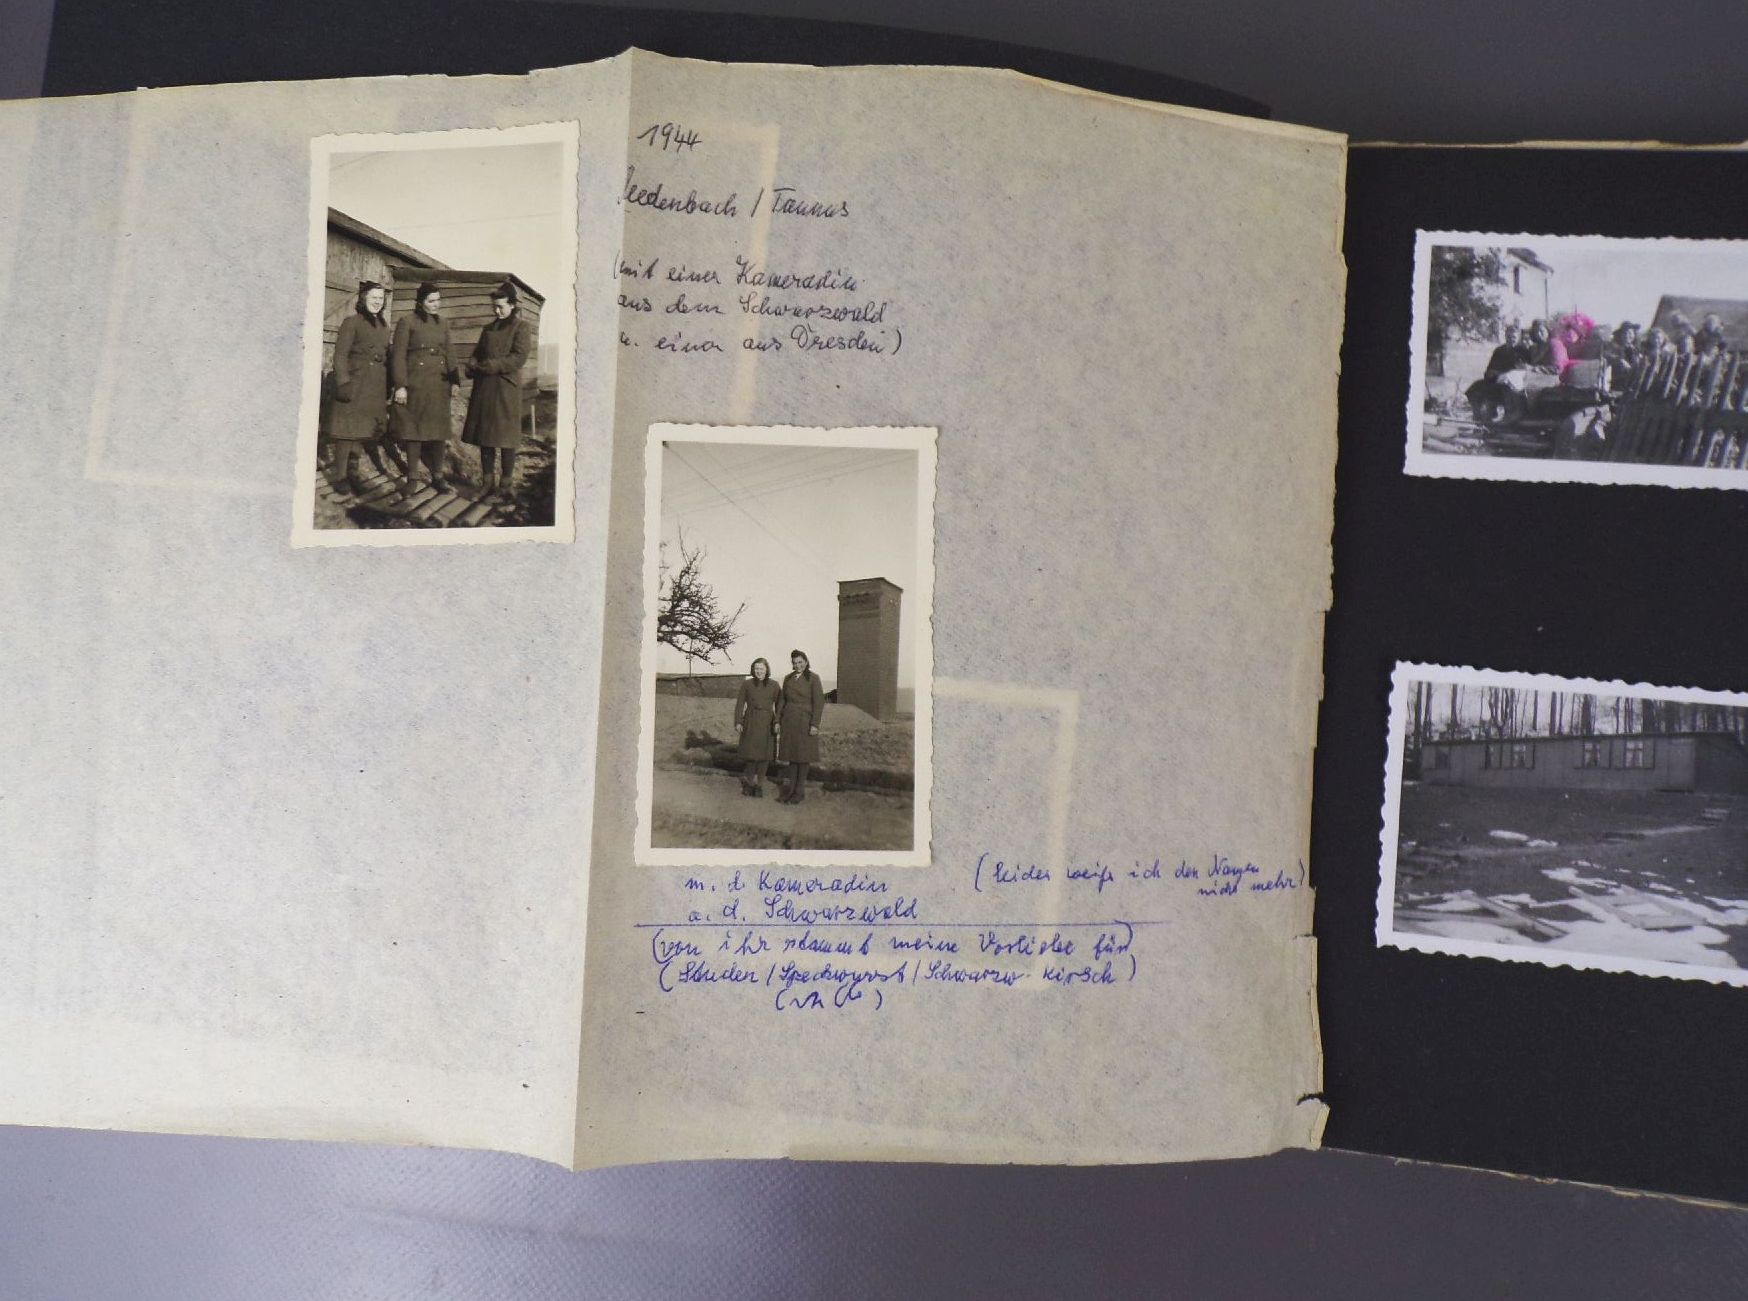 1944
Seedenbach / Taunus
(mit einer Kameradin
aus dem Schwarzwald
u. einer aus Dresden)
m. d. Kameradin
a. d. Schwarzwald
(leider weiß ich den Namen
nicht mehr)
(von ihr stammt meine Vorliebe für)
/Speckwurst/Schwarzw. Kirsch)